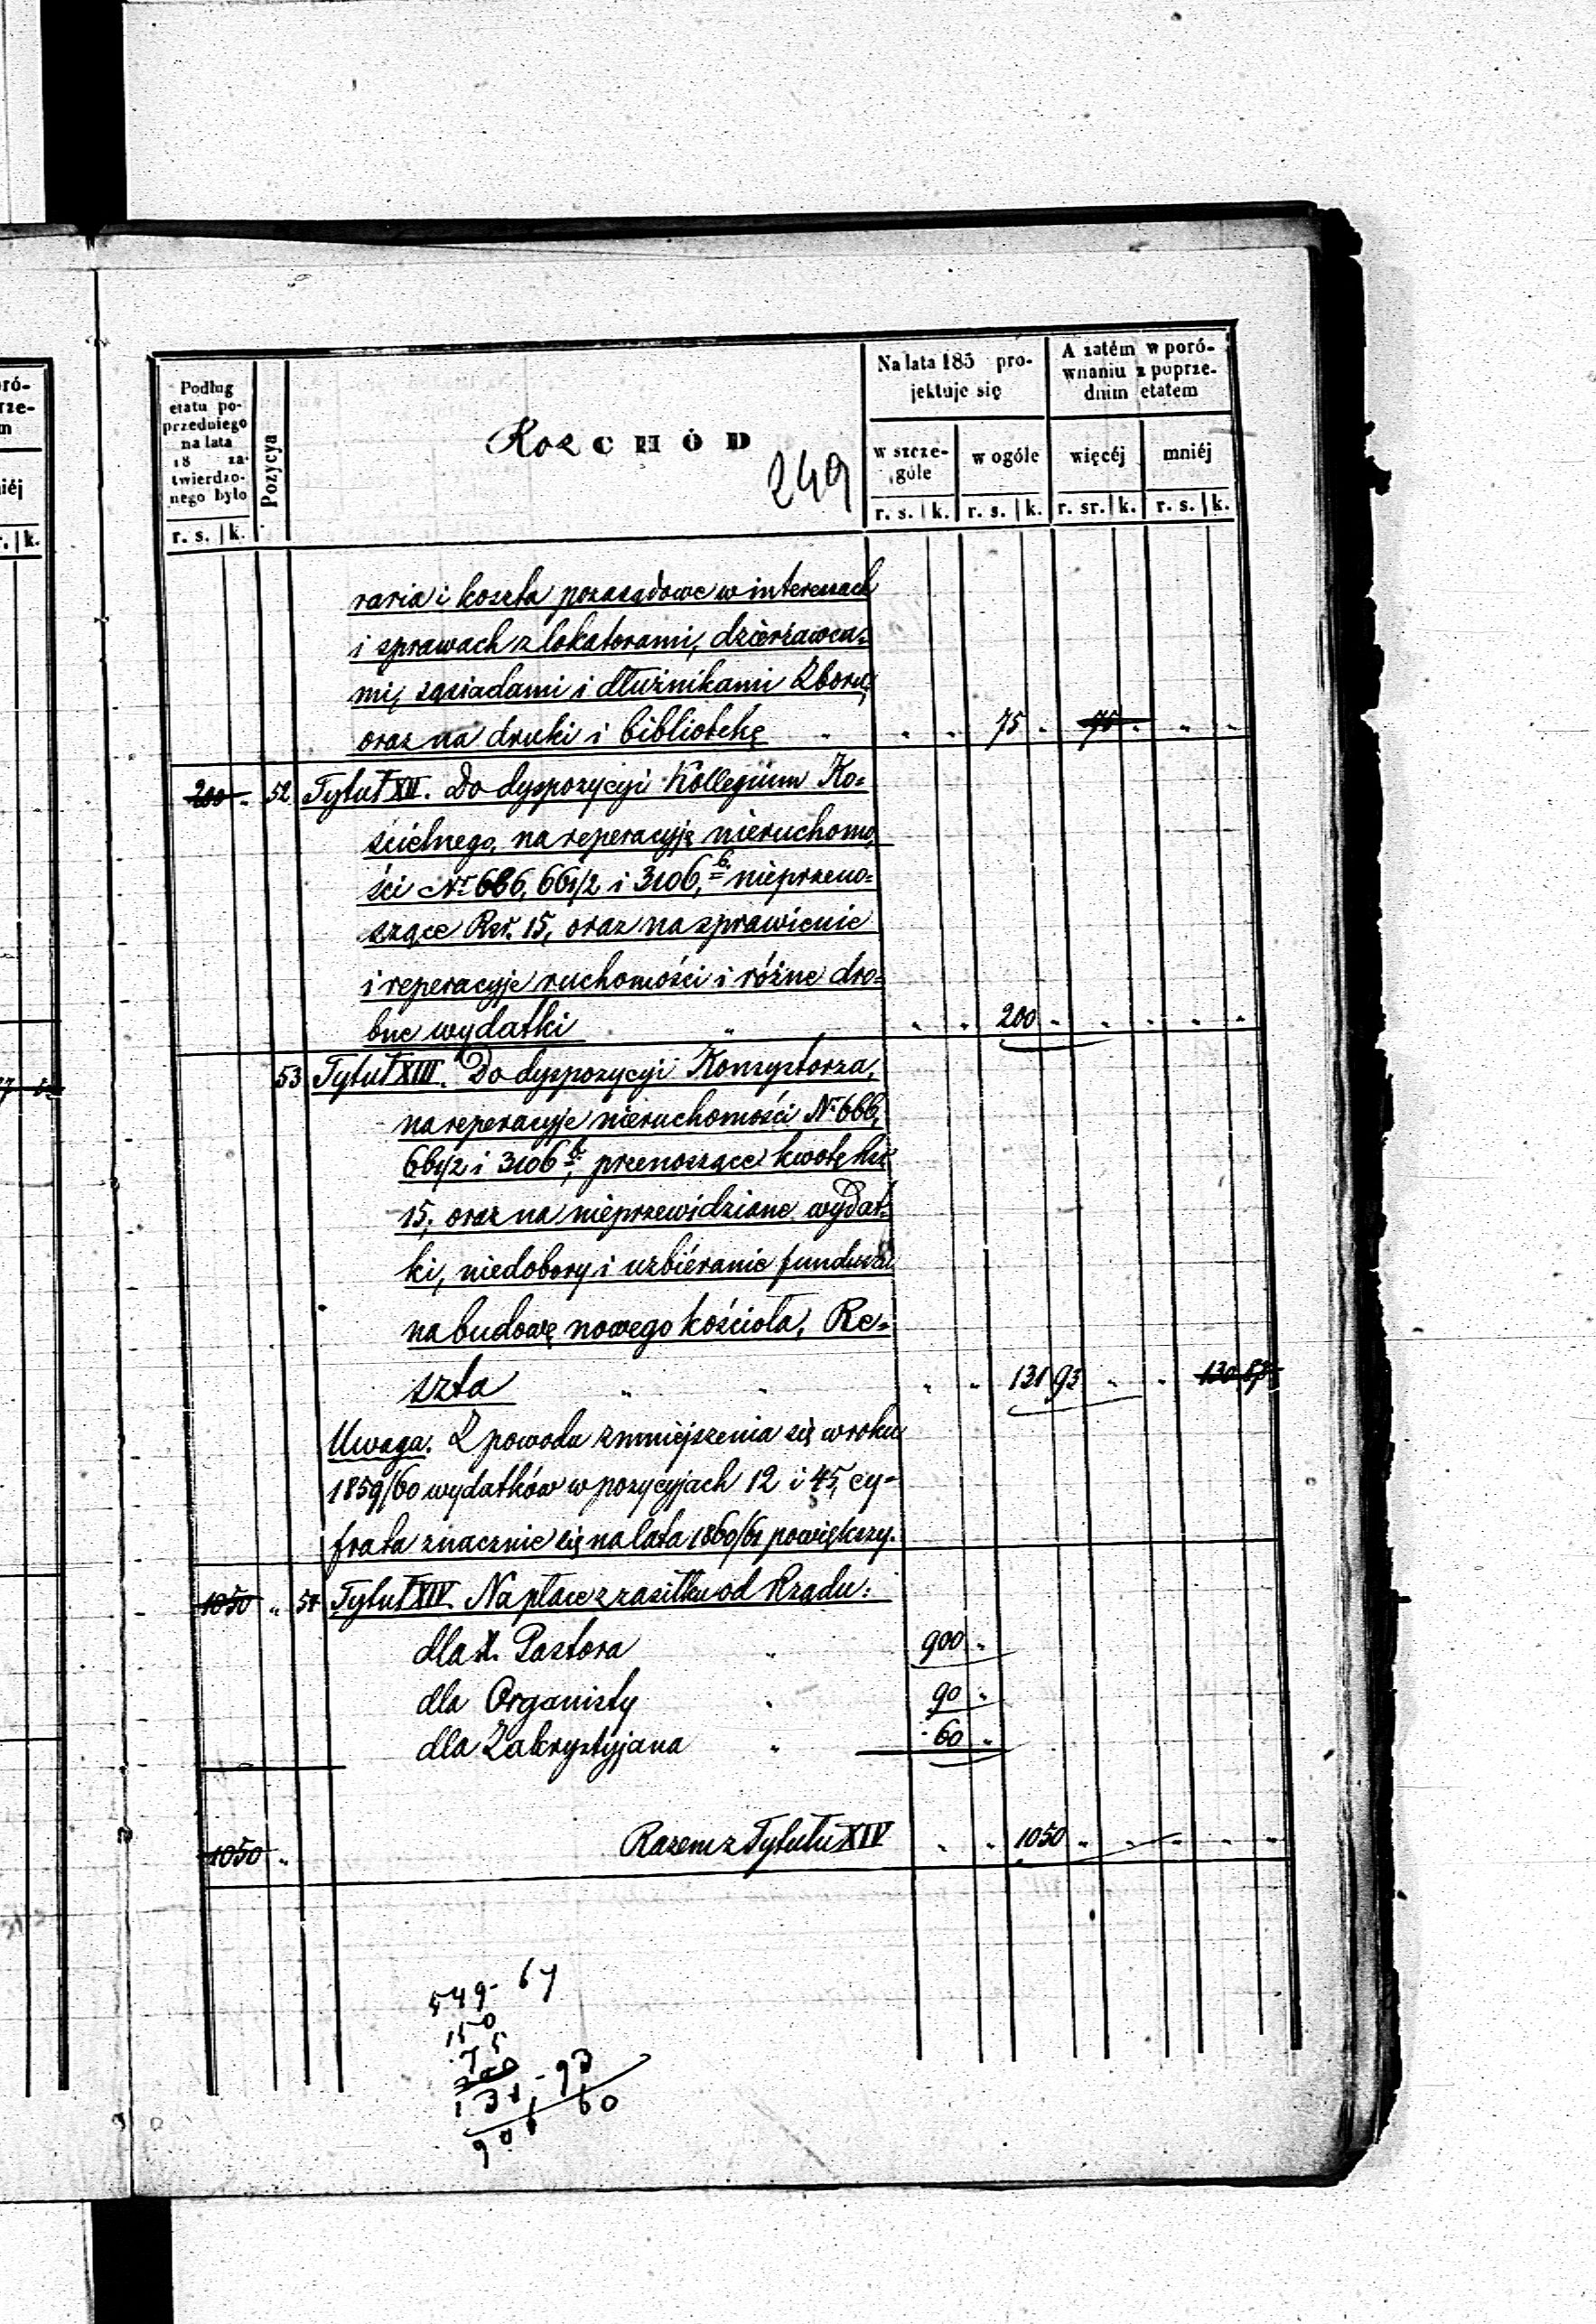 Podług
etatu po-
przedniego
na lata
18 za-
twierdzo-
nego było
r. s. k.
Pozycya
RozCHÓD
249
Na lata 185 pro-
jektuje się
w szcze-
góle
w ogóle
r. s. k. r. s. k.
A zatém w poró-
wnaniu z poprze-
dnim etatem
więcéj mniéj
r. sr. k. r. s. k.
raria i koszta pozasądowe w interessach
i sprawach z lokatorami, dzierżawca=
mi, sąsiadami i dłużnikami Zboru,
oraz na druki i bibliotekę " " " 75 " 75 " " "
200 " 52 Tytuł XII. Do dyspozycyi Kollegium Ko=
ścielnego, na reperacyję nieruchomo
ści Nr 686, 661/2 i 3106 b. nieprzeno=
szące Rsr. 15, oraz na sprawienie
i reperacyje ruchomości i różne dro=
bne wydatki " " " 200 " " " " "
53 Tytuł XIII. Do dyspozycyi Konsystorza,
na reperacyje nieruchomości Nr 686,
661/2 i 3106 b, przenoszące kwotę Rsr
15, oraz na nieprzewidziane wydat=
ki, niedobory i uzbiéranie funduszu
na budowę nowego kościoła, Re=
szta " " " " 131 93 " " 130 83
Uwaga. Z powodu zmniejszenia się w roku
1859/60 wydatków w pozycyjach 12 i 45, cy-
fra ta znacznie się na lata 1860/61 powiększy.
1050 " 54 Tytuł XIV. Na płace z zasiłku od Rządu:
dla X. Pastora " 900 "
dla Organisty " 90 "
dla Zakrystyjana " 60 "
1050 " Razem z Tytułu XIV " " 1050 " " " " "
549 - 67
150
75
200
131 - 93
60